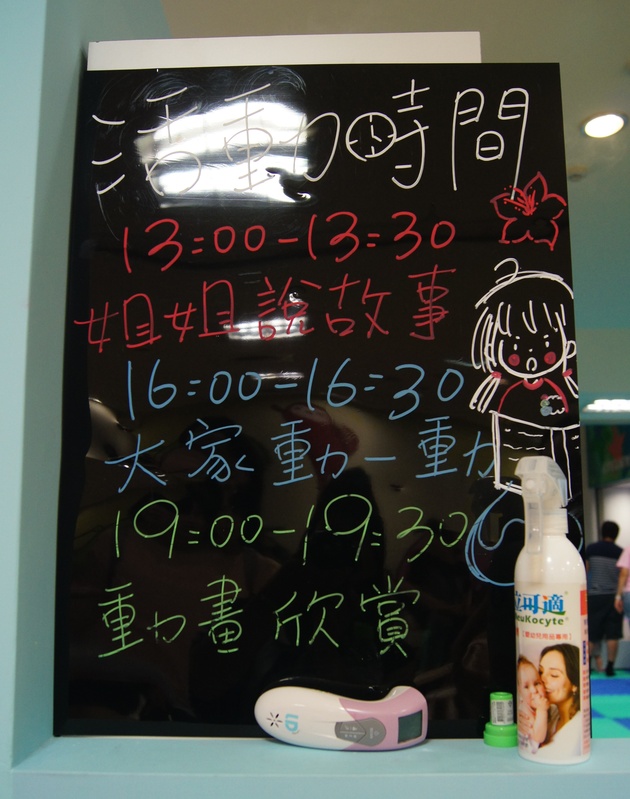 活動時間
13:00-13:30
姐姐說故事
16:00-16:30
大家動一動
19:00-19:30
動畫欣賞
可適
uKocyte